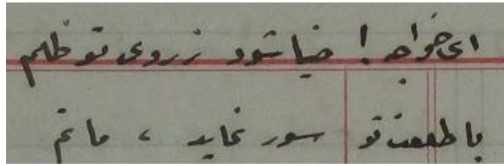 ای خواجه! ضیا شود ز روی تو ظلم
با طلعت تو سور نماید، ماتم